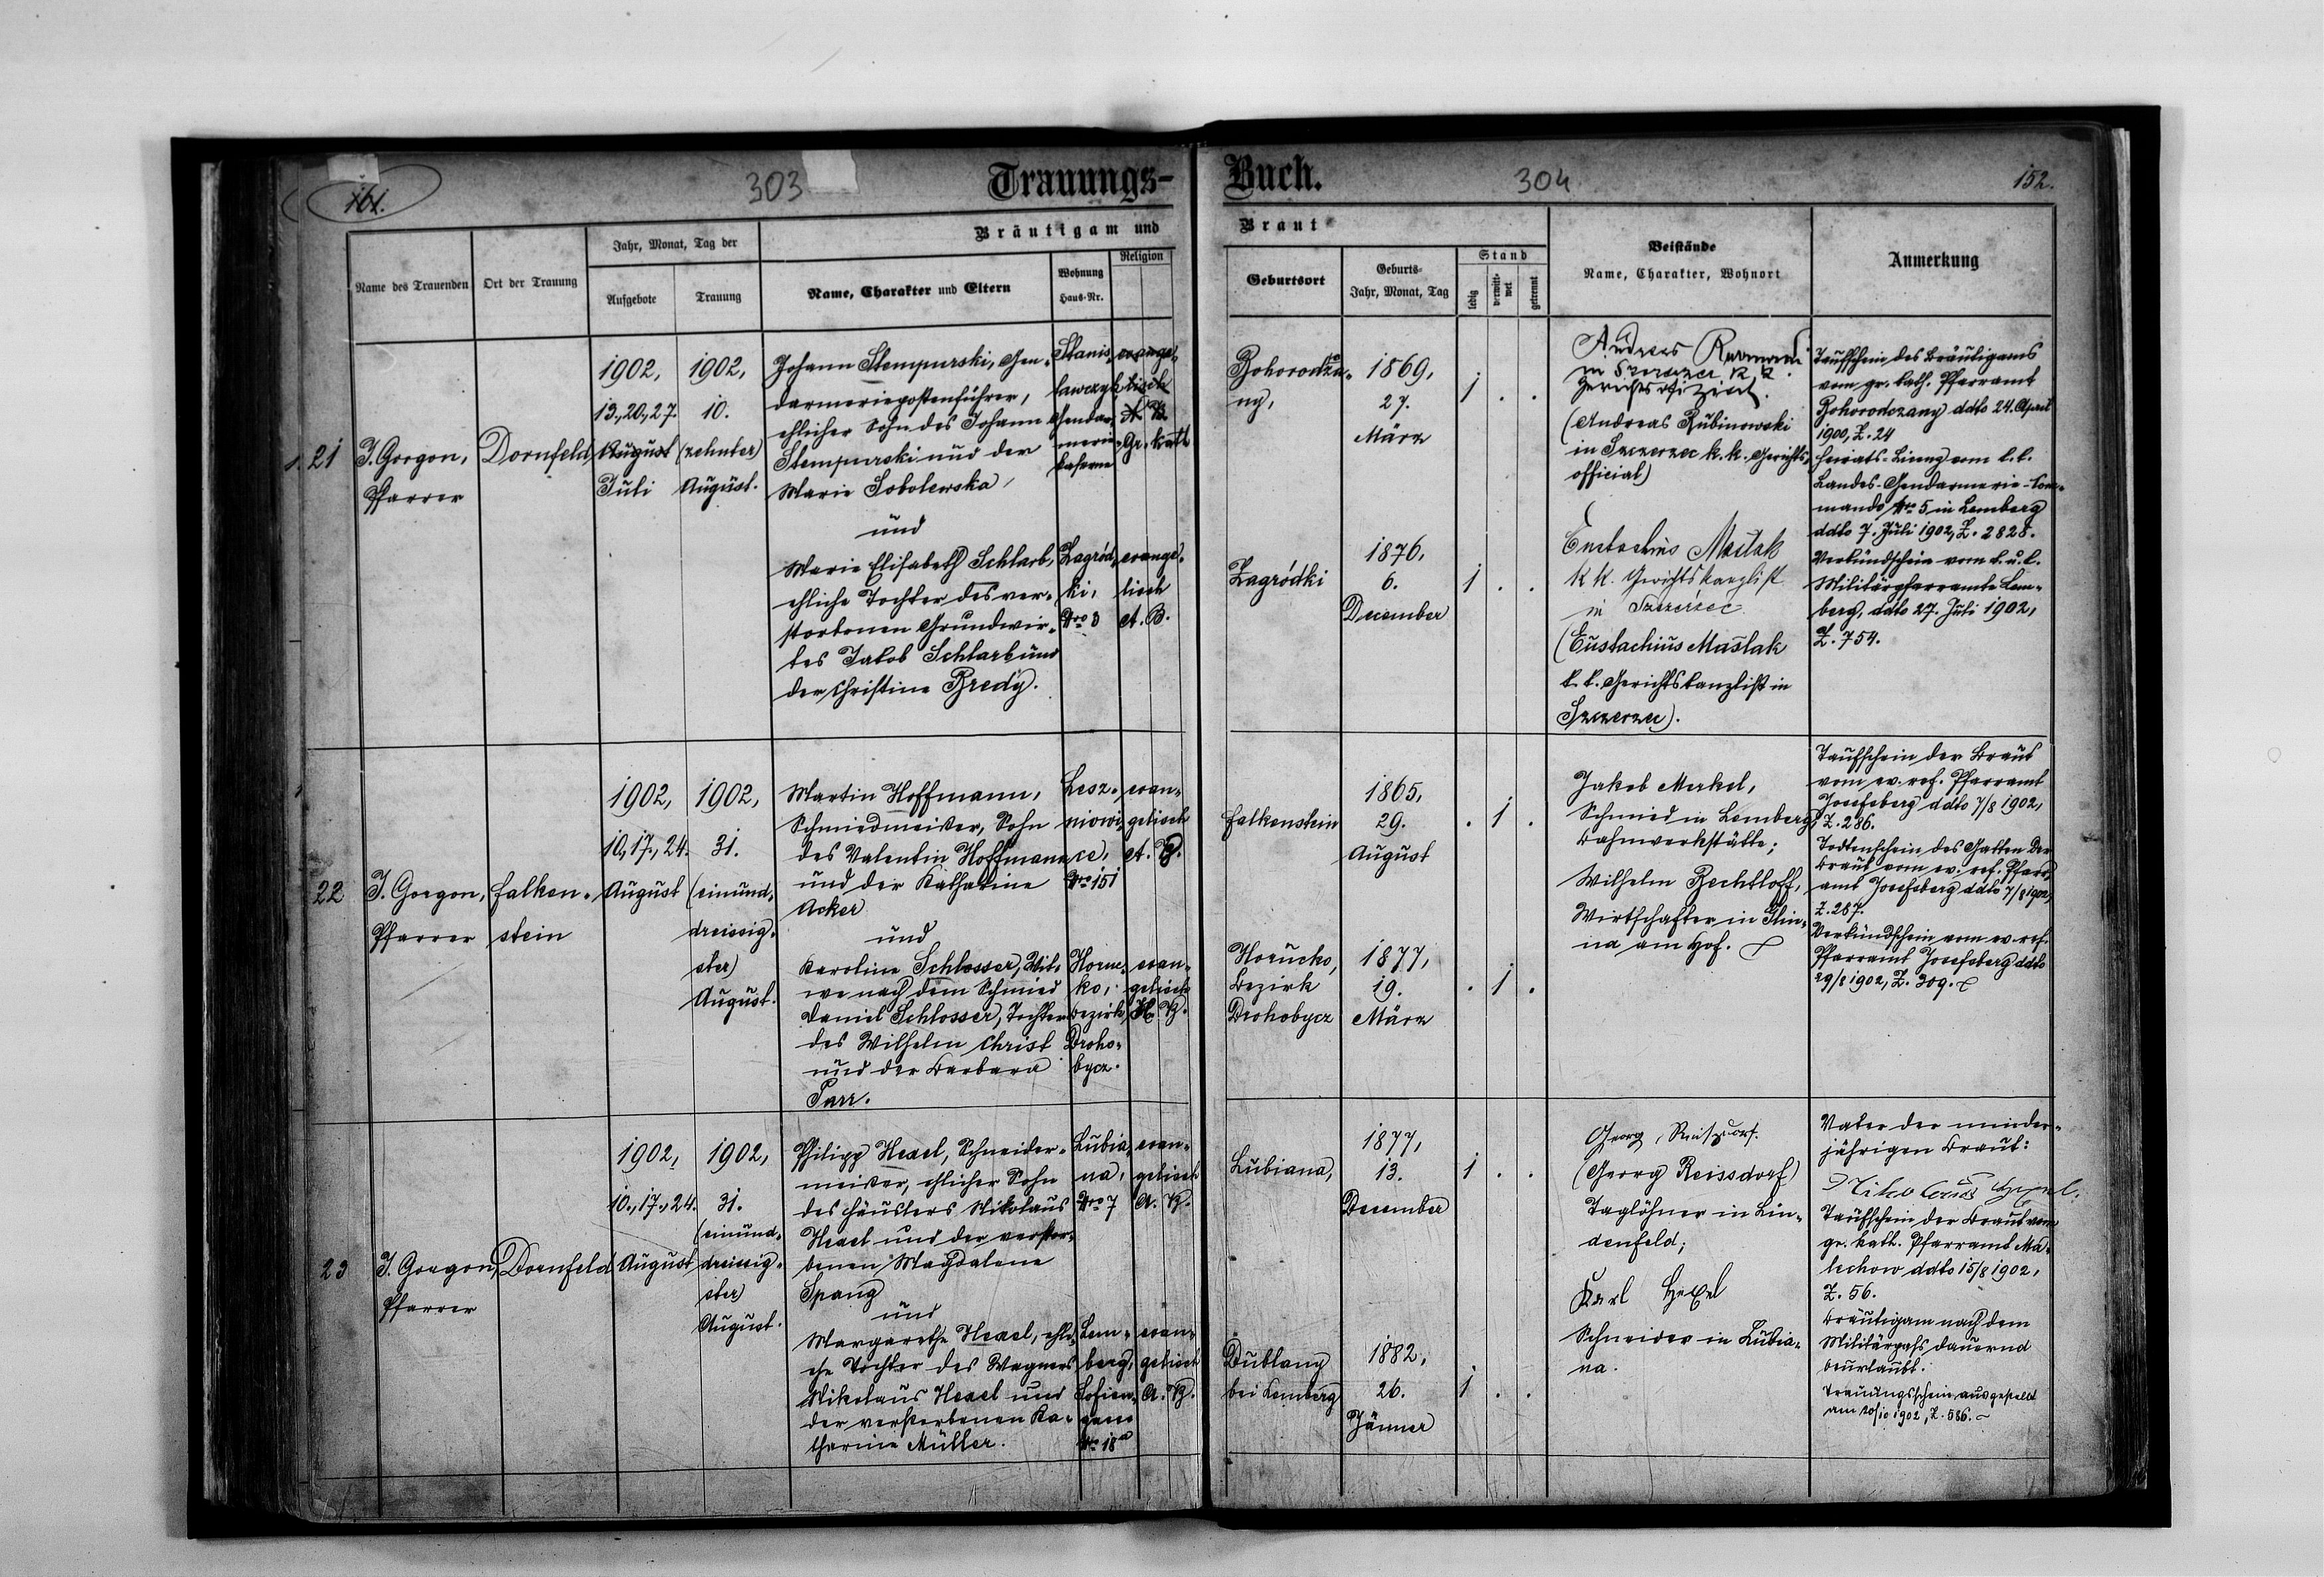 161.
303
Trauungs-
Buch.
304
152.
Bräutigam und
Braut
Name des Trauenden
Ort der Trauung
Jahr, Monat, Tag der
Aufgebote
Trauung
Name, Charakter und Eltern
Wohnung
Haus-Nr.
Religion
Geburtsort
Geburts-
Jahr, Monat, Tag
Stand
ledig
verwit-
wet
getrennt
Beistände
Name, Charakter, Wohnort
Anmerkung
21
J. Gorgon,
Pfarrer
Dornfeld
1902,
13., 20., 27.
August
Juli
1902,
10.
(zehnter)
August.
Johann Stempurski, Gen-
darmeriepostenführer,
ehlicher Sohn des Johann
Stempurski und der
Marie Sobolewska,
und
Marie Elisabeth Schlarb,
ehliche Tochter des ver-
storbenen Grundwir-
tes Jakob Schlarb und
der Christine Bredy.
Stanis-
lawczyk
Gendar-
merie-
kaserne
evange-
lisch
A. B.
Gr. kath
Zagród-
ki,
Nro 3
evange-
lisch
A. B.
Bohorodcza-
ny,
1869,
27.
März
1 . .
Zagródki
1876,
6.
December
1 . .
Andreas
in Szczerzec k. k.
Gerichtsofizial.
(Andreas Rubinowski
in Szczerzec k. k. Gerichts-
official)
Eustachius Maślak
k k. Gerichtskanzlist
in Szczerzec
(Eustachius Maślak
k. k. Gerichtskanzlist in
Szczerzec).
Taufschein des Bräutigams
vom gr. kath. Pfarramt
Bohorodczany ddto 24. April
1900, Z. 24
Heirats-Lizenz vom k. k.
Landes-Gendarmerie-Com-
mando Nro 5 in Lemberg
ddto 7. Juli 1902, Z. 2828.
Verkündschein vom k. u. k.
Militärpfarramte Lem-
berg, ddto 27. Juli 1902,
Z. 754.
22
J. Gorgon,
Pfarrer
Falken-
stein
1902,
10., 17., 24.
August
1902,
31.
(einund-
dreissig-
ster)
August.
Martin Hoffmann,
Schmiedmeister, Sohn
des Valentin Hoffmann
und der Katharine
Acker
und
Karoline Schlosser, Wit-
we nach dem Schmied
Daniel Schlosser, Tochter
des Wilhelm Christ
und der Barbara
Parr.
Lesz-
niowi-
ce,
Nro 151
evan-
gelisch
A. B.
Horuc-
ko,
Bezirk
Droho-
bycz.
evan-
gelisch
H. B.
Falkenstein
1865,
29.
August
. 1 .
Horucko,
Bezirk
Drohobycz
1877,
19.
März
. 1 .
Jakob Merkel,
Schmied in Lemberg
Bahnwerkstätte;
Wilhelm Bechtloff,
Wirtschafter in Glin-
na am Hof.
Taufschein der Braut
vom ev. ref. Pfarramt
Josefsberg ddto 7/8 1902,
Z. 286.
Todtenschein des Gatten der
Braut vom ev. ref. Pfarr-
amt Josefsberg ddto 7/8 1902,
Z. 287.
Verkündschein vom ev. ref.
Pfarramt Josefsberg ddto
29/8 1902, Z. 309.
23
J. Gorgon,
Pfarrer
Dornfeld
1902,
10., 17., 24.
August
1902,
31.
(einund-
dreissig-
ster)
August.
Philipp Hexel, Schneider-
meister, ehlicher Sohn
des Häuslers Nikolaus
Hexel und der verstor-
benen Magdalene
Spang
und
Margarethe Hexel, ehli-
che Tochter des Wagners
Nikolaus Hexel und
der verstorbenen Ka-
tharine Müller.
Lubia-
na,
Nro 7
evan-
gelisch
A. B.
Lem-
berg,
Sofien-
gasse
Nro 18a
evan-
gelisch
A. B.
Lubiana,
1877,
13.
December
1 . .
Dublany
bei Lemberg
1882,
26.
Jänner
1 . .
Georg Reiszdorf.
(Georg Reissdorf)
Taglöhner in Lin-
denfeld;
Karl Hexel
Schneider in Lubia-
na.
Vater der minder-
jährigen Braut:
Nikolaus Hexel.
Taufschein der Braut vom
gr. kath. Pfarramt Ma-
lechow ddto 15/8 1902,
Z. 56.
Bräutigam nach dem
Militärpass dauernd
beurlaubt.
Trauungsschein ausgestellt
am 20/10 1902, Z. 586.